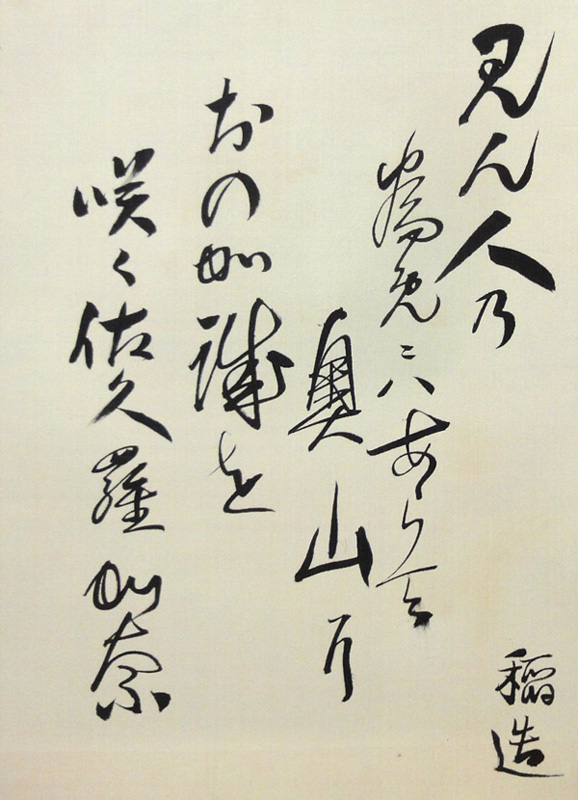 見ん人乃
為免ニハあらで
奥山爾
おの加誠を
咲く佐久羅加奈
稲造